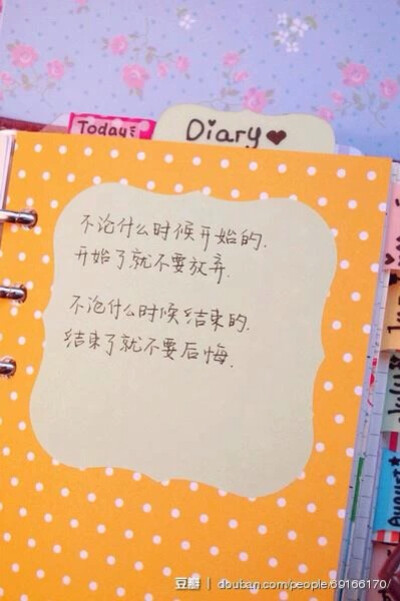 Today
Diary
不论什么时候开始的.
开始了就不要放弃.
不论什么时候结束的.
结束了就不要后悔.
August
豆瓣 | douban.com/people/69166170/